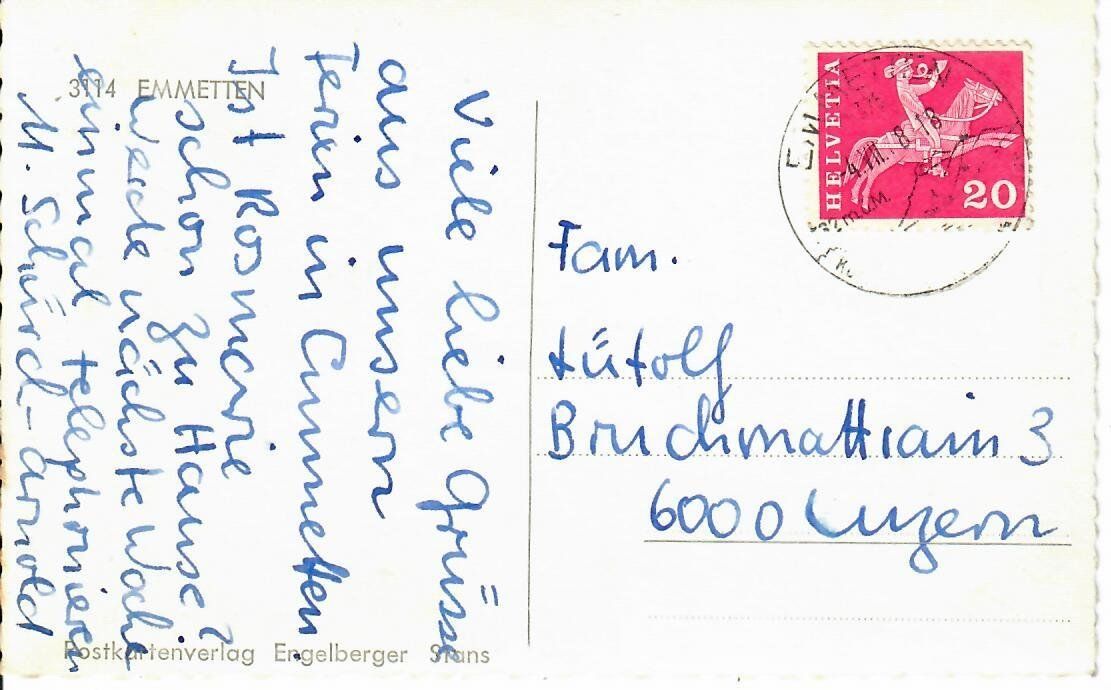 3114 EMMETTEN
Viele liebe Grüsse
aus unsern
Ferien in Emmetten
Ist Rosmarie
schon zu Hause?
Werde nächste Woche
einmal telephonieren
M. Schürch-Arnold
Postkartenverlag Engelberger Stans
HELVETIA
20
EMMETTEN
-4.III.78.18
Fam.
Lütolf
Bruchmattrain 3
6000 Luzern